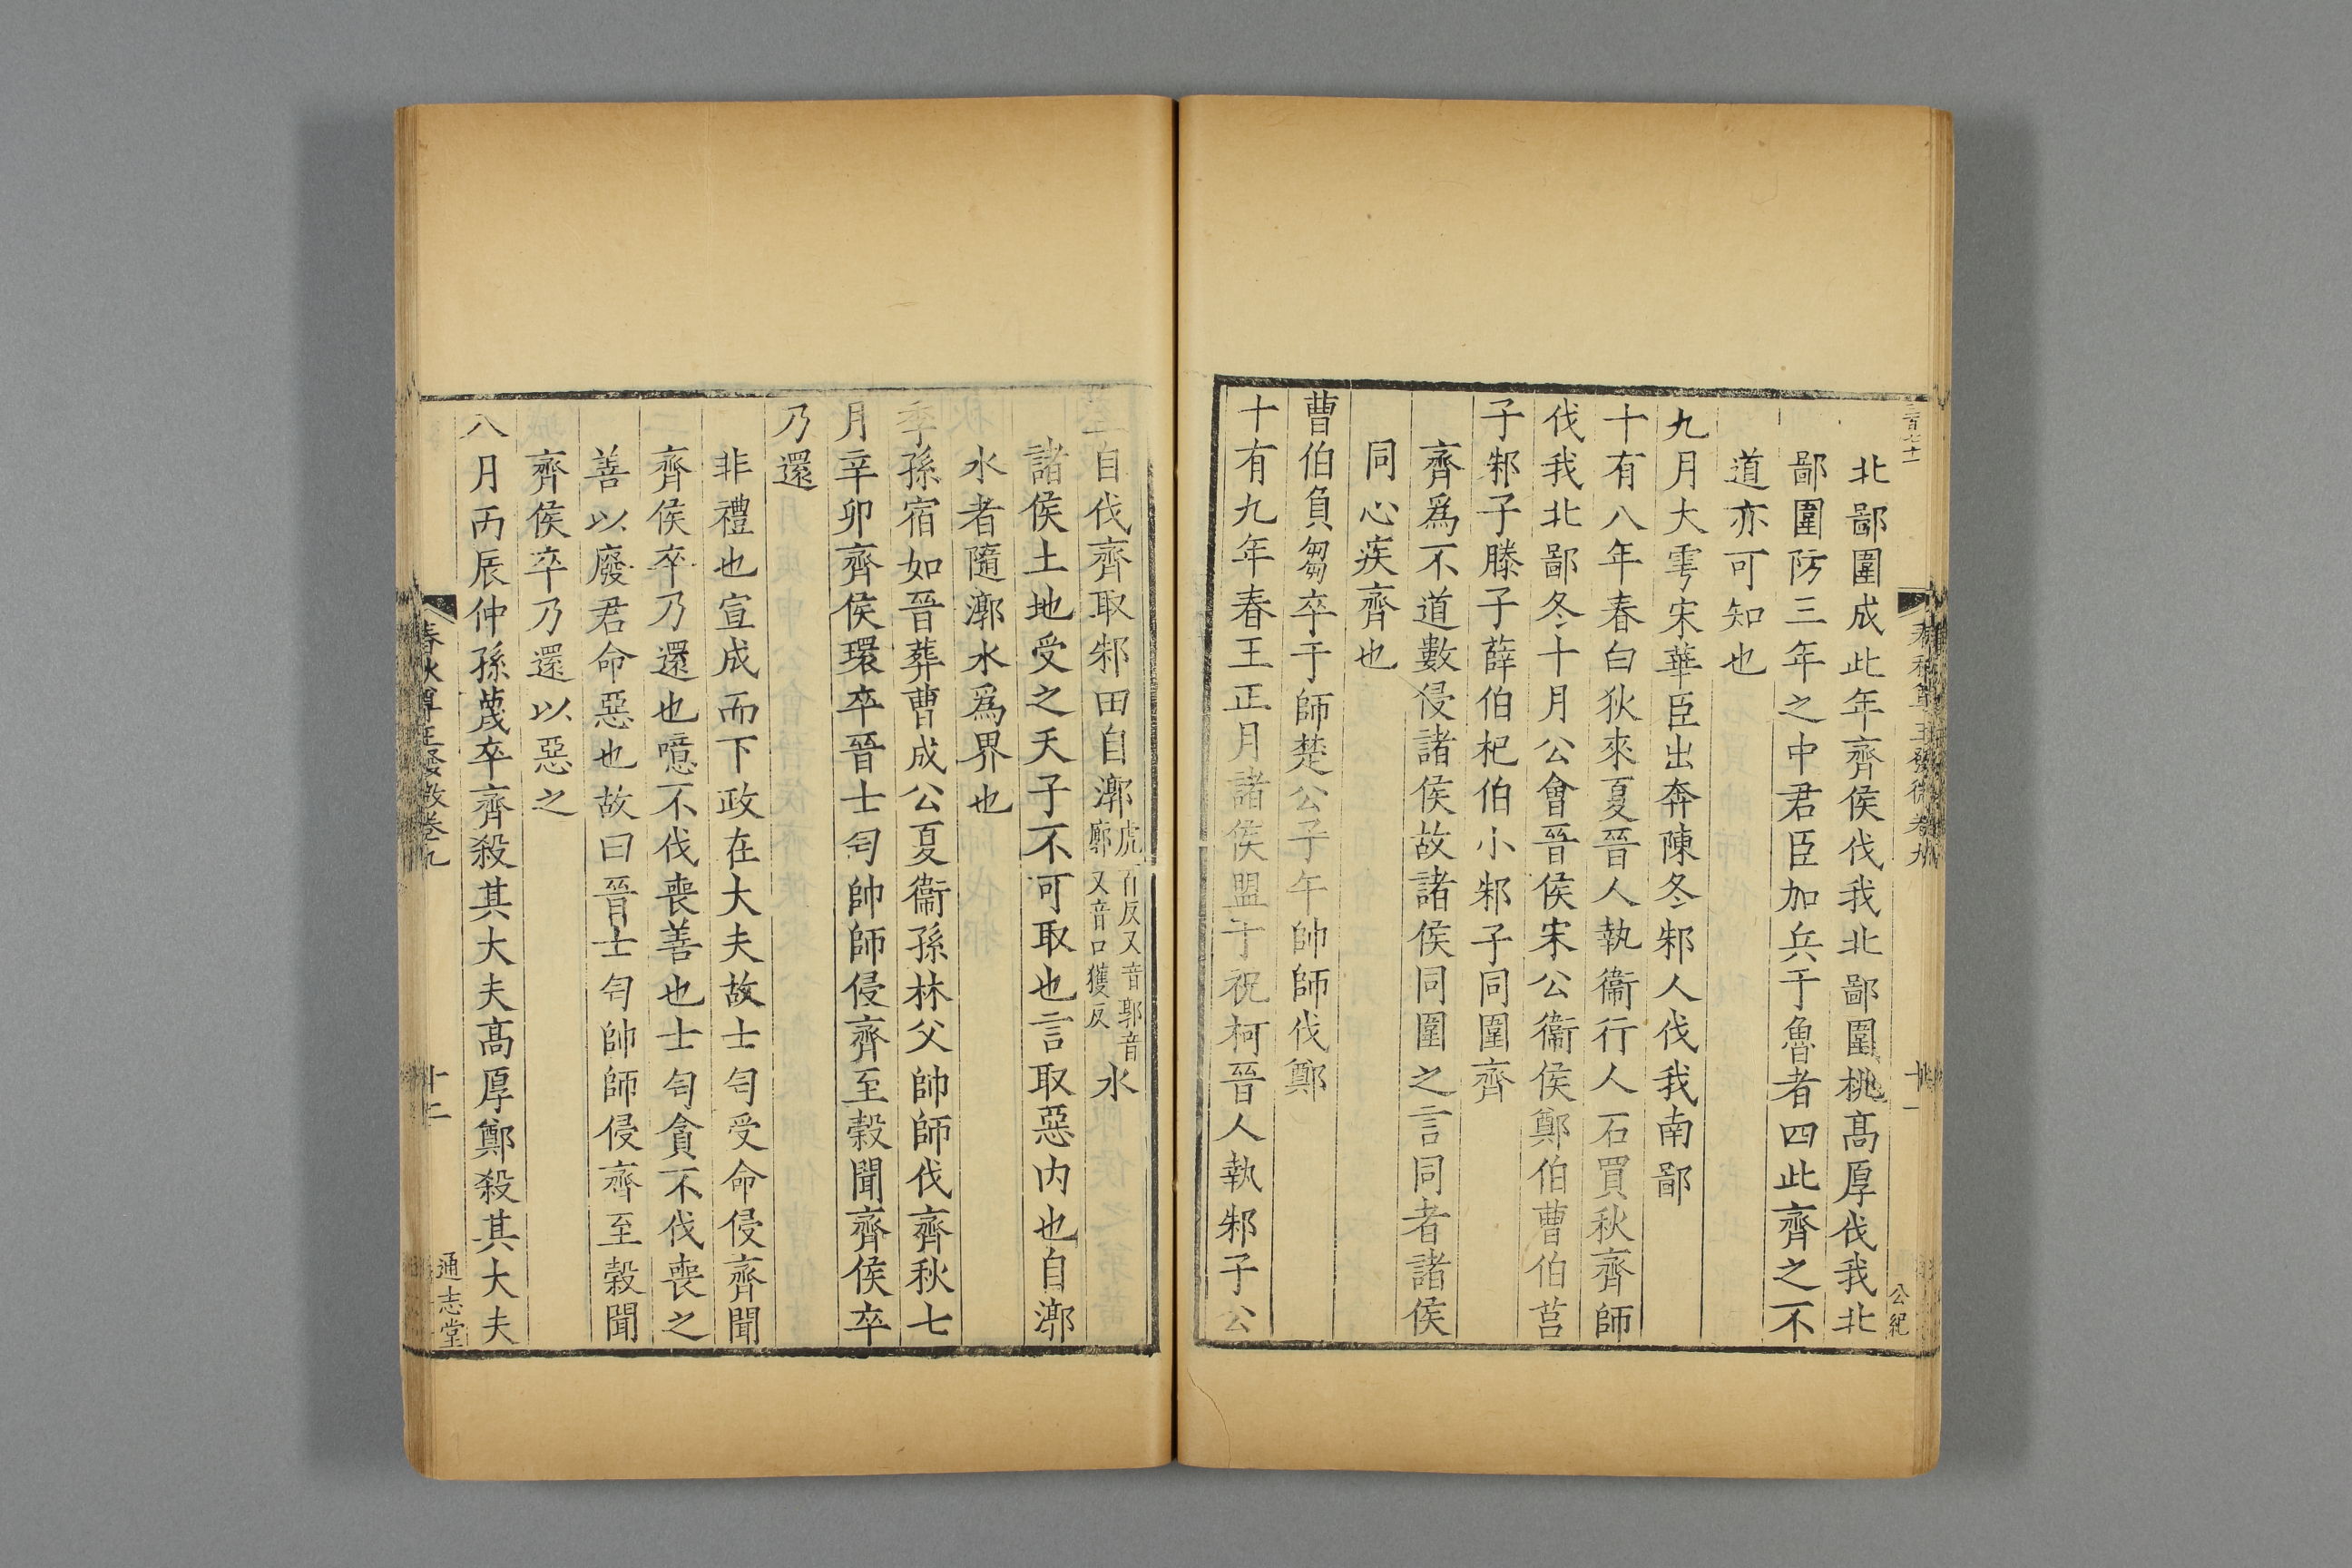 三百七十一
春秋尊王發微卷九
十一
公紀
北鄙圍成此年齊侯伐我北鄙圍桃髙厚伐我北
鄙圍防三年之中君臣加兵于魯者四此齊之不
道亦可知也
九月大雩宋華臣出奔陳冬邾人伐我南鄙
十有八年春白狄來夏晉人執衞行人石買秋齊師
伐我北鄙冬十月公會晉侯宋公衞侯鄭伯曹伯莒
子邾子滕子薛伯杞伯小邾子同圍齊
齊爲不道數侵諸侯故諸侯同圍之言同者諸侯
同心疾齊也
曹伯負芻卒于師楚公子午帥師伐鄭
十有九年春王正月諸侯盟于祝柯晉人執邾子公
至自伐齊取邾田自漷虎百反又音郭音廓又音口獲反水
諸侯土地受之天子不可取也言取惡内也自漷
水者隨漷水爲界也
季孫宿如晉葬曹成公夏衞孫林父帥師伐齊秋七
月辛卯齊侯環卒晉士匄帥師侵齊至榖聞齊侯卒
乃還
非禮也宣成而下政在大夫故士匄受命侵齊聞
齊侯卒乃還也噫不伐喪善也士匄貪不伐喪之
善以廢君命惡也故曰晉士匄帥師侵齊至榖聞
齊侯卒乃還以惡之
八月丙辰仲孫蔑卒齊殺其大夫髙厚鄭殺其大夫
春秋尊王發微卷九
十二
通志堂